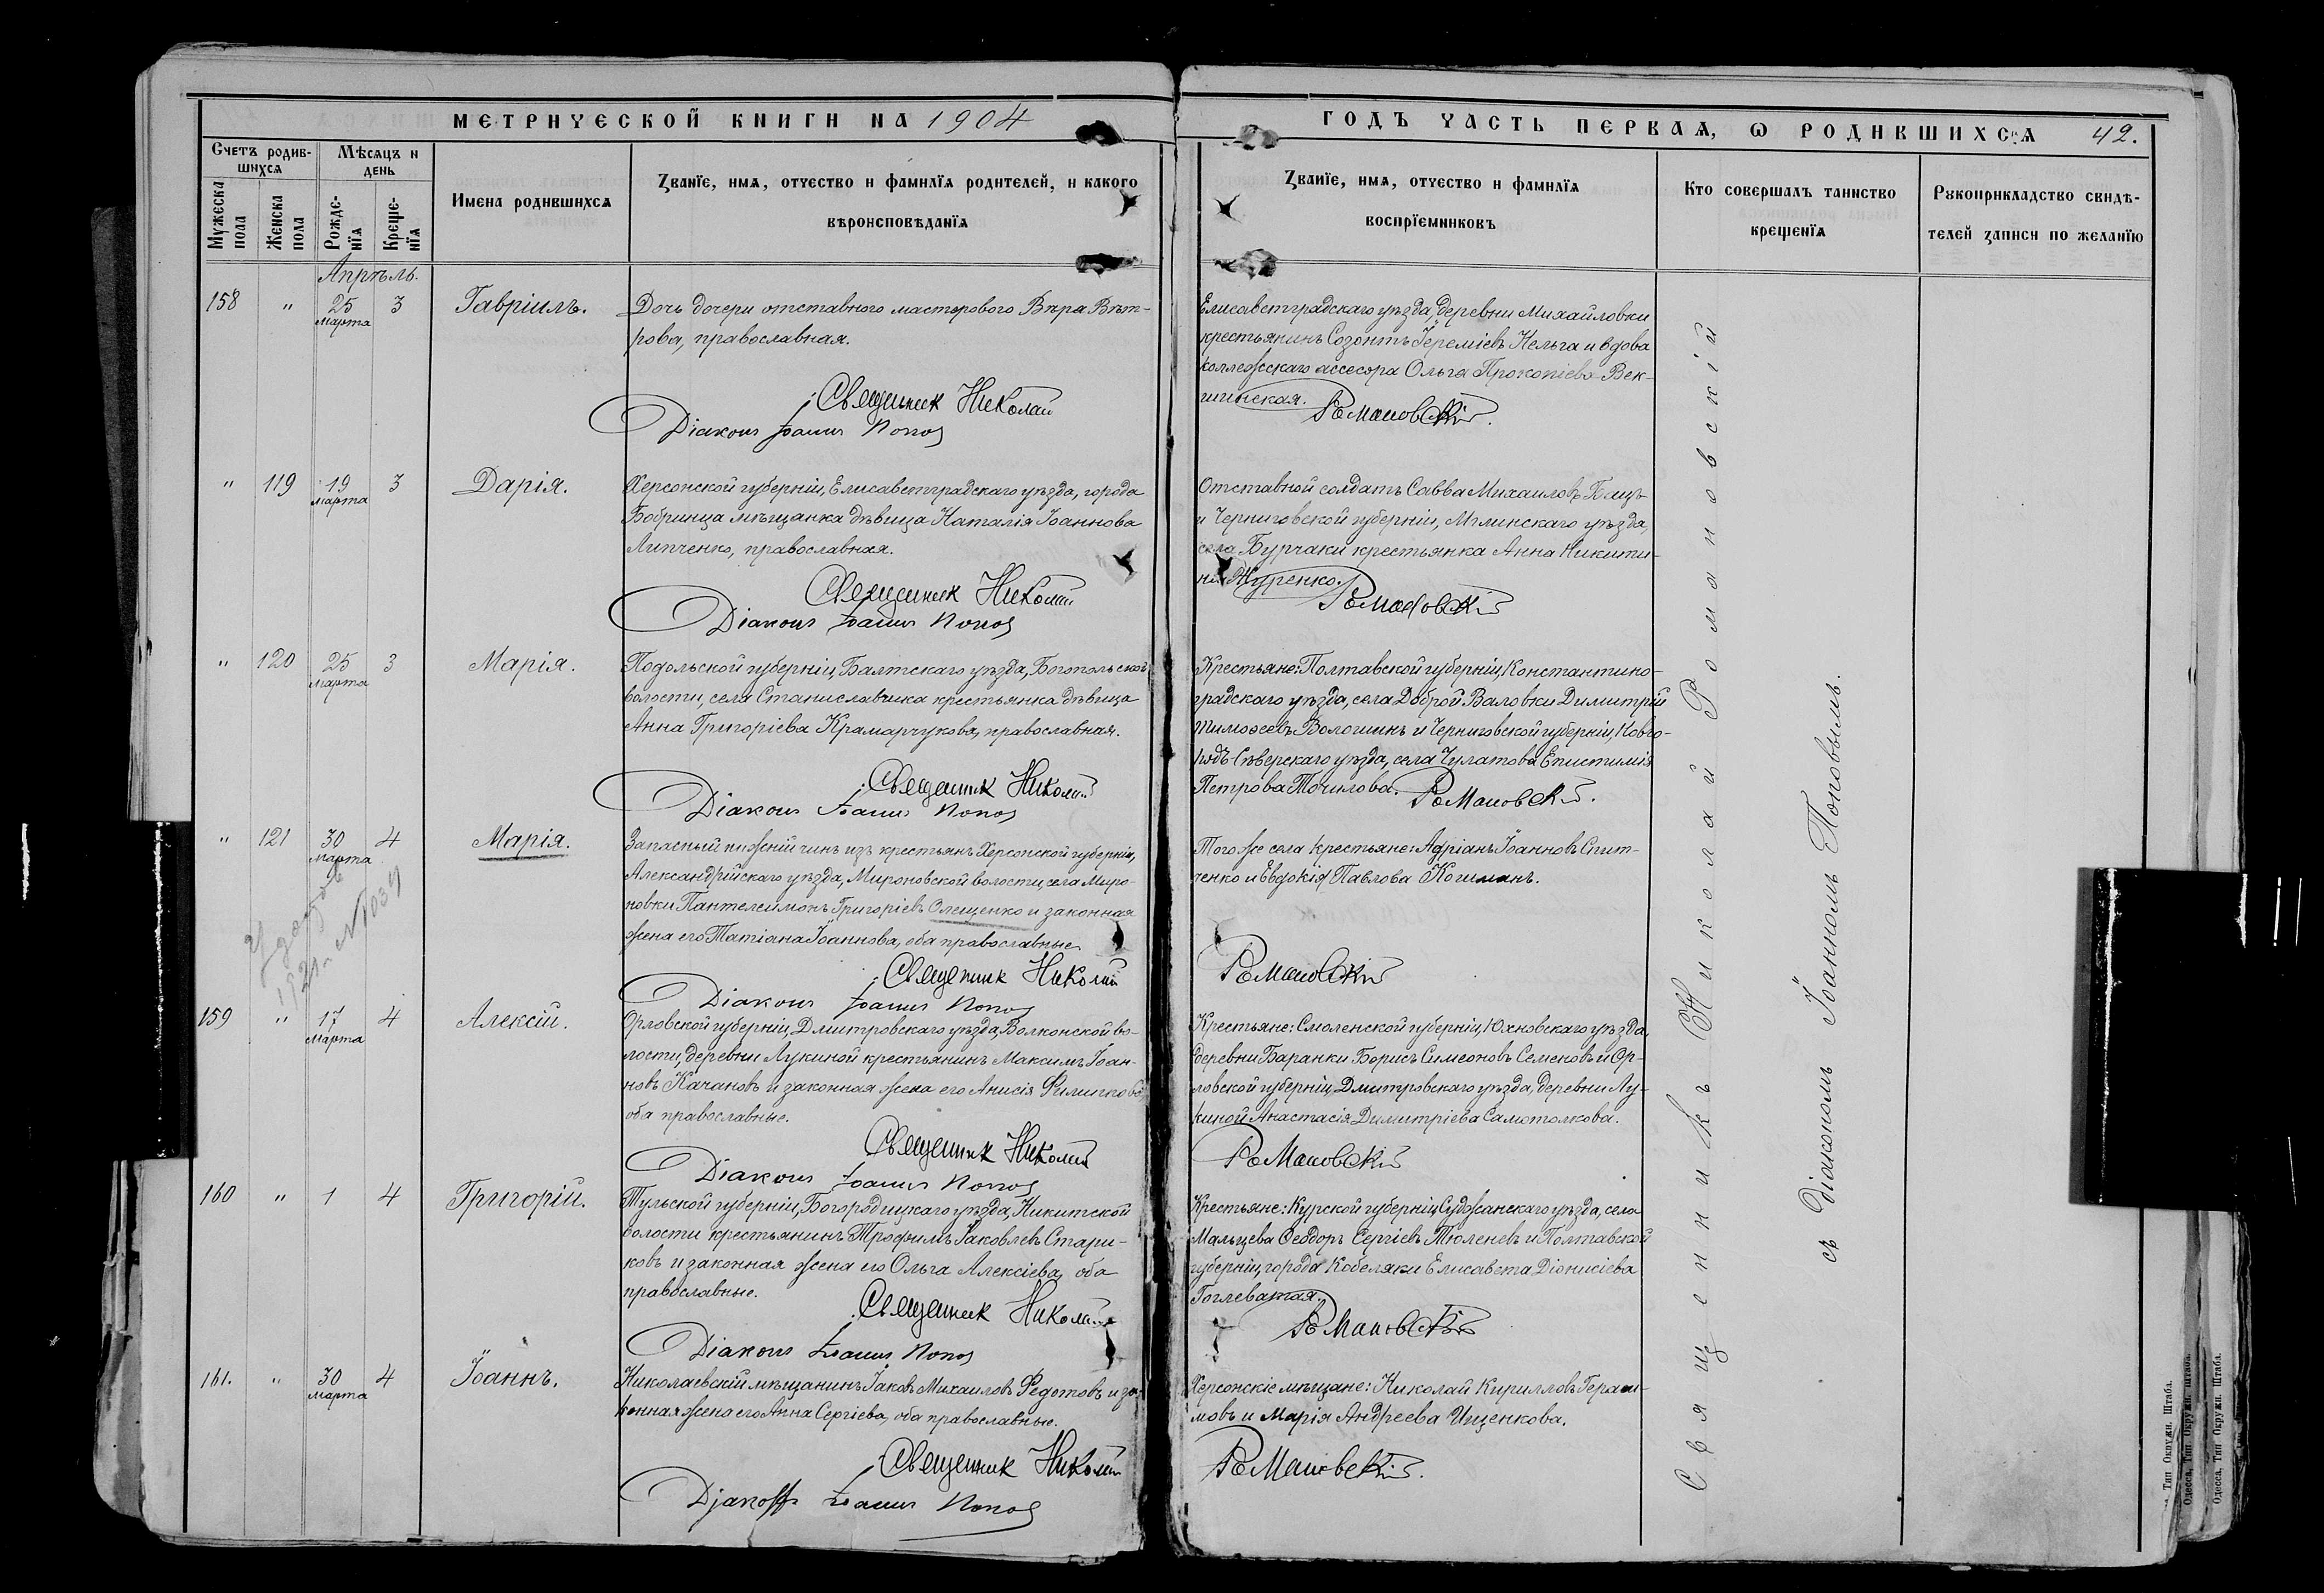 МЕТРИЧЕСКОЙ КНИГИ НА 1904
ГОДЪ ЧАСТЬ ПЕРВАЯ, Ѡ РОДИВШИХСЯ 42.
Счетъ родив-
шихся
Мѣсяцъ и
день
Мужеска
пола
Женска
пола
Рожде-
нїя
Креще-
нїя
Имена родившихся
Званїе, имя, отчество и фамилїя родителей, и какого
вѣроисповѣданїя
Званїе, имя, отчество и фамилїя
воспрїемниковъ
Кто совершалъ таинство
крещенїя
Рукоприкладство свидѣ-
телей записи по желанїю
Апрѣль.
158 " 25 марта 3 Гавріилъ.
Дочь дочери отставного мастерового Вѣра Вѣт-
рова, православная.
Священник Николай
Діаконъ Іоаннъ Попов
Елисаветградскаго уѣзда, деревни Михайловки
крестьянинъ Созонтъ Іереміевъ Кельга и вдова
коллежскаго ассесора Ольга Прокопіева Век-
шинская.
Романовскій.
" 119 19 марта 3 Дарія.
Херсонской губерніи, Елисаветградскаго уѣзда, города
Бобринца мѣщанка дѣвица Наталія Іоаннова
Липченко, православная.
Священник Николай
Діаконъ Іоаннъ Попов
Отставной солдатъ Савва Михаиловъ Бацъ
и Черниговской губерніи, Мглинскаго уѣзда,
села Бурчаки крестьянка Анна Никити-
на Журенко.
Романовскій
" 120 25 марта 3 Марія.
Подольской губерніи, Балтскаго уѣзда, Богопольской
волости, села Станиславчика крестьянка дѣвица
Анна Григоріева Крамарчукова, православная.
Священник Николай
Діаконъ Іоаннъ Попов
Крестьяне: Полтавской губерніи, Константино-
градскаго уѣзда, села Доброй Валовки Димитрій
Тимоѳеевъ Волошинъ и Черниговской губерніи, Новго-
родъ Сѣверскаго уѣзда, села Чулатова Епистимія
Петрова Точилова.
Романовскій.
" 121 30 марта 4 Марія.
Запасный нижній чинъ изъ крестьянъ Херсонской губерніи,
Александрійскаго уѣзда, Мироновской волости, села Миро-
новки Пантелеимонъ Григоріевъ Олещенко и законная
жена его Татіана Іоаннова, оба православные.
Священник Николай
Діаконъ Іоаннъ Попов
Того же села крестьяне: Адріанъ Іоанновъ Спит-
ченко и Евдокія Павлова Когиманъ.
Романовскій
159 " 17 марта 4 Алексій.
Орловской губерніи, Дмитровскаго уѣзда, Волконской во-
лости, деревни Лукиной крестьянинъ Максимъ Іоан-
новъ Качановъ и законная жена его Анисія Филиппова,
оба православные.
Священник Николай
Діаконъ Іоаннъ Попов
Крестьяне: Смоленской губерніи, Юхновскаго уѣзда,
деревни Баранки Борисъ Симеоновъ Семеновъ и Ор-
ловской губерніи, Дмитровскаго уѣзда, деревни Лу-
киной Анастасія Димитріева Самотолкова.
Романовскій
160 " 1 4 Григорій.
Тульской губерніи, Богородицкаго уѣзда, Никитской
волости крестьянинъ Трофимъ Іаковлевъ Стари-
ковъ и законная жена его Ольга Алексіева, оба
православные.
Священник Николай
Діаконъ Іоаннъ Попов
Крестьяне: Курской губерніи, Суджанскаго уѣзда, села
Мальцева Ѳеодоръ Сергіевъ Тюленевъ и Полтавской
губерніи, города Кобеляки Елисавета Діонисіева
Гоглеватая.
Романовскій
161. " 30 марта 4 Іоаннъ.
Николаевскій мѣщанинъ Іаковъ Михаиловъ Федотовъ и за-
конная жена его Анна Сергіева, оба православные.
Священник Николай
Діаконъ Іоаннъ Попов
Херсонскіе мѣщане: Николай Кирилловъ Гераси-
мовъ и Марія Андреева Ищенкова.
Романовскій.
Священникъ Николай Романовскій
съ діакономъ Іоанномъ Поповымъ.
Тип Окружн. Штаба.
Одесса, Тип Окружн. Штаба.
Одесса, Тип Окружн. Штаба.